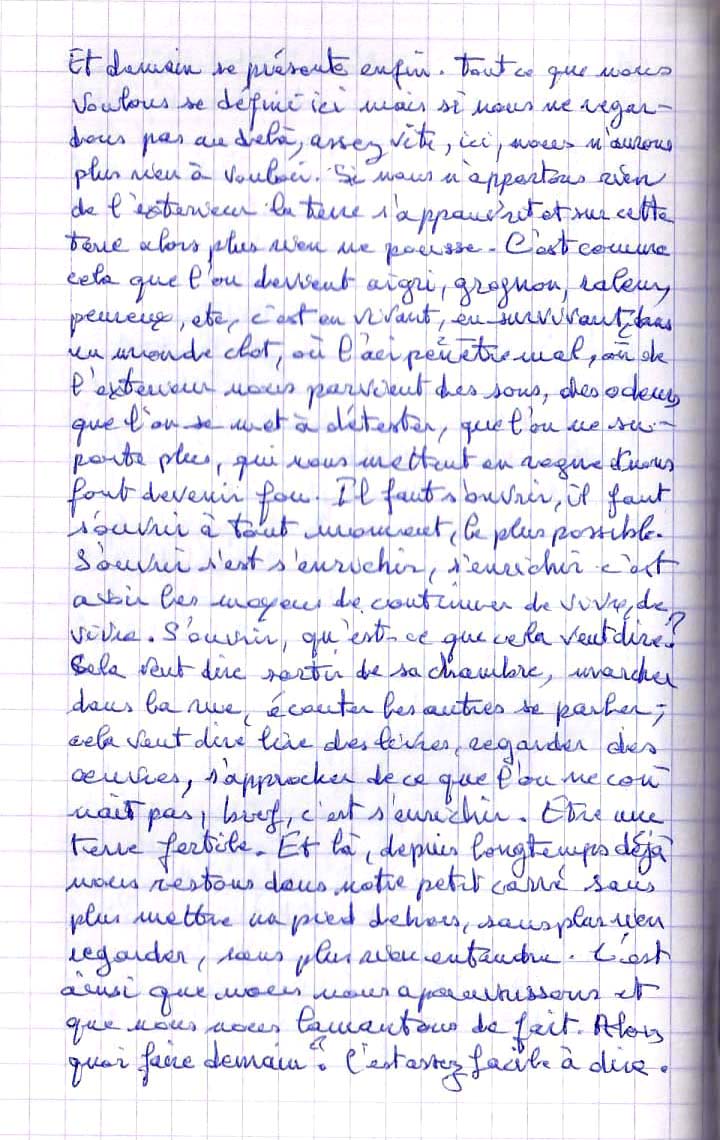 Et demain se présente enfin. Tout ce que nous
voulons se définit ici mais si nous ne regar-
dons pas au delà, assez vite, ici, nous n'aurons
plus rien à vouloir. Si nous n'apportons rien
de l'exterieur la terre s'appauvrit et sur cette
terre alors plus rien ne pousse. C'est comme
cela que l'on devient aigri, grognon, raleur,
peureux, etc, c'est en vivant, en survivant dans
un monde clot, où l'air pénètre mal, où de
l'exterieur nous parvient des sons, des odeurs
que l'on se met à détester, que l'on ne su-
porte plus, qui nous mettent en rogne et nous
font devenir fou. Il faut s'ouvrir, il faut
s'ouvrir à tout moment, le plus possible.
S'ouvrir s'est s'enrichir, s'enrichir c'est
avoir les moyens de continuer de vivre, de
vivre. S'ouvrir, qu'est-ce que cela veut dire?
Cela veut dire sortir de sa chambre, marcher
dans la rue, écouter les autres se parler;
cela veut dire lire des livres, regarder des
œuvres, s'approcher de ce que l'on ne con
nait pas, bref, c'est s'enrichir. Etre une
terre fertile. Et là, depuis longtemps déjà
nous restons dans notre petit carré sans
plus mettre un pied dehors, sans plus rien
regarder, sans plus rien entendre. C'est
ainsi que nous nous apauvrissons et
que nous nous lamentons de fait. Alors
quoi faire demain? C'est assez facile à dire.